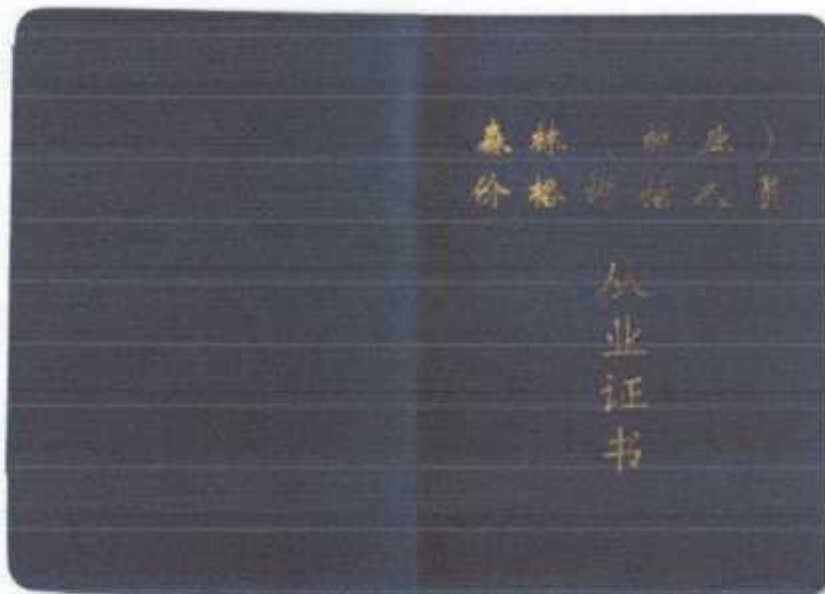 森林（林业）
价格评估人员
从业证书